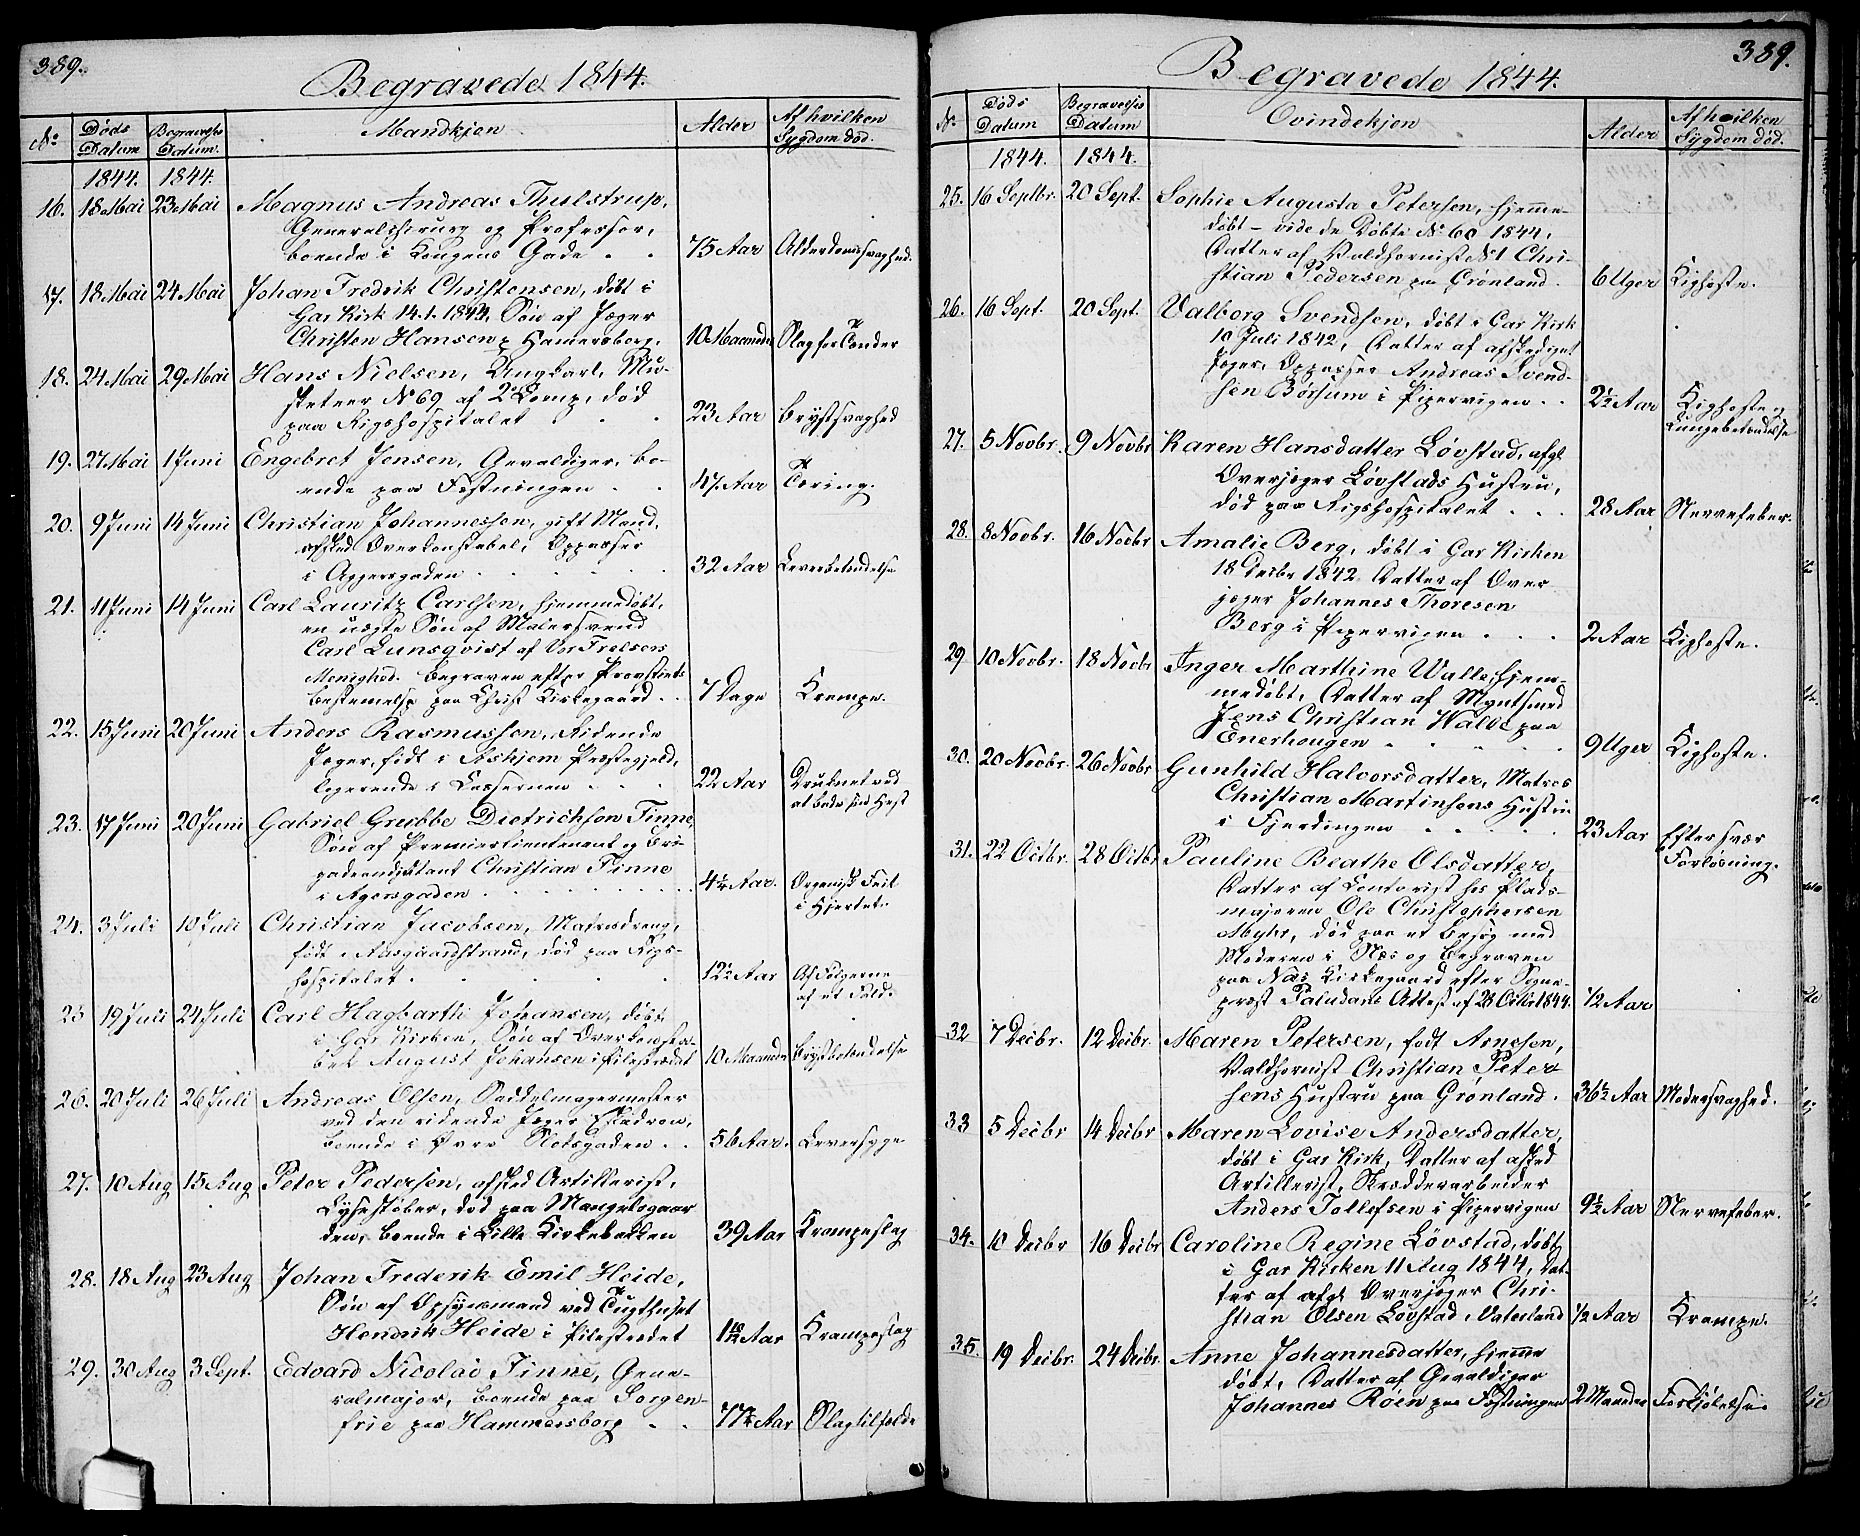 389.
Begravede 1844.
No Døds Datum Begravelses Datum. Mandkjøn Alder Af hvilken Sygdom død.
1844. 1844.
16. 18 Mai 23 Mai Magnus Andreas Thulstrup,
Generalchirurg og Professor,
boende i Kongens Gade . . 75 Aar Alderdomssvaghed.
17. 18 Mai 24 Mai Johan Fredrik Christensen, døbt i
Gar Kirk 14.1.1844, Søn af Jæger
Christen Hansen p Hamersborg. 10 Maaneder Slag for Tænder
18. 24 Mai 29 Mai Hans Nielsen, Ungkarl, Mu-
sketeer No 69 af 2 Comp, død
paa Rigshospitalet . . . 23 Aar Brystsvaghed
19. 27 Mai 1 Juni Engebret Jensen, Gevaldiger, bo-
ende paa Fæstningen . . 47 Aar Tæring.
20. 9 Juni 14 Juni Christian Johannessen, gift Mand,
afsked Overkonstabel, Oppasser
i Aggersgaden . . . . 32 Aar Leverbetændelse
21. 11 Juni 14 Juni Carl Lauritz Carlsen, hjemmedøbt,
en uægte Søn af Malersvend
Carl Lunsqvist af Vor Frelsers
Menighed. Begraven efter Provstiets
bestemmelse paa Christ Kirkegaard . . 7 Dage Krampe.
22. 15 Juni 20 Juni Anders Rasmussen, Ridende
Jæger, født i Askjem Præstegjeld,
logerende i Casernen . . . 22 Aar Druknet ved
at bade sin Hest
23. 17 Juni 20 Juni Gabriel Grubbe Dietrichson Finne,
Søn af Premierlieutenant og Bri-
gadeadjutant Christian Finne
i Agersgaden . . . . 4½ Aar. Organisk Feil
i Hjertet.
24. 3 Juli 10 Juli Christian Jacobsen, Matrosdreng,
født i Aasgaardstrand, død paa Rigs-
hospitalet . . . . 12½ Aar Af Følgerne
af et Fald.
25 19 Juli 24 Juli Carl Hagbarth Johansen, døbt
i Gar Kirken, Søn af Overkonsta-
bel August Johansen i Pilestrædet 10 Maaneder Brystbetændelse
26. 20 Juli 26 Juli Andreas Olsen, Saddelmagermester
ved den ridende Jæger Eskadron,
boende i Øvre Slotsgaden . . 56 Aar. Leversyge
27. 10 Aug 15 Aug Peter Pedersen, afsked Artillerist,
Lysestøber, død paa Mangelsgaar
den, boende i Lille Kirkebakken 39 Aar Krampeslag
28. 18 Aug 23 Aug Johan Frederik Emil Heide,
Søn af Opsynsmand ved Tugthuset
Hendrik Heide i Pilestrædet 1 10/12 Aar Krampeslag
29. 30 Aug 3 Sept. Edvard Nicolai Finne, Gene-
ralmajor, boende paa Sorgen-
frie paa Hammersborg . . 77½ Aar Slagtilfælde
389.
Begravede 1844.
No. Døds Datum Begravelses Datum Qvindekjøn Alder Af hvilken Sygdom død.
1844. 1844.
25. 16 Septbr. 20 Sept. Sophie Augusta Petersen, hjemme-
døbt - vide de Døbte No 60 1844,
Datter af Valdhornist No 1 Chri-
stian Pedersen paa Grønland. 6 Uger Kighoste.
26. 16 Sept. 20 Sept. Valborg Svendsen, døbt i Gar Kirk
10 Juli 1842, Datter af afskediget
Jæger, Oppasser Andreas Svend-
sen Børsum i Pipervigen . . 2½ Aar Kighoste og
Lungebetændelse
27. 5 Novbr. 9 Novbr Karen Hansdatter Løvstad, afgl
Overjæger Løvstads Hustru,
død paa Rigshospitalet . . . 28 Aar Nervefeber.
28. 8 Novbr. 16 Novbr Amalie Berg, døbt i Gar Kirken
18 Decbr 1842. Datter af Over
jæger Johannes Thoresen
Berg i Pipervigen . . . 2 Aar Kighoste.
29 10 Novbr. 18 Novbr Inger Marthine Walle, hjem-
medøbt, Datter af Myntsmed
Jens Christian Walle paa
Enerhougen . . . . 9 Uger Kighoste.
30. 20 Novbr. 26 Novbr Gunhild Halvorsdatter, Matros
Christian Martinsens Hustru
i Fjerdingen . . . . 23 Aar Efter svær
Forløsning.
31. 22 Octbr. 28 Octbr Pauline Beathe Olsdatter,
Datter af Contorist hos Plads-
majoren Ole Christophersen
Myhr, død paa et Besøg med
Moderen i Næs og Begraven
paa Næs Kirkegaard efter Sogne-
præst Paludans Attest af 28 Octbr 1844. ½ Aar
32 7 Decbr. 12 Decbr. Maren Petersen, født Arnesen,
Valdhornist Christian Peter-
sens Hustru paa Grønland. 36½ Aar Modersvaghed.
33 5 Decbr 14 Decbr Maren Lovise Andersdatter,
døbt i Gar Kirk, Datter af afsked
Artillerist, Skrædderarbeider
Anders Tollefsen i Pipervigen 9½ Aar Nervefeber.
34. 10 Decbr 16 Decbr Caroline Regine Løvstad, døbt
i Gar Kirken 11 Aug 1844, Dat-
ter af afgl Overjæger Chri-
stian Olsen Løvstad i Vaterland ½ Aar Krampe.
35. 19 Decbr. 24 Decbr. Anne Johannesdatter, hjemme
døbt, Datter af Gevaldiger
Johannes Røen paa Fæstningen 2 Maaneder Forkjølelse